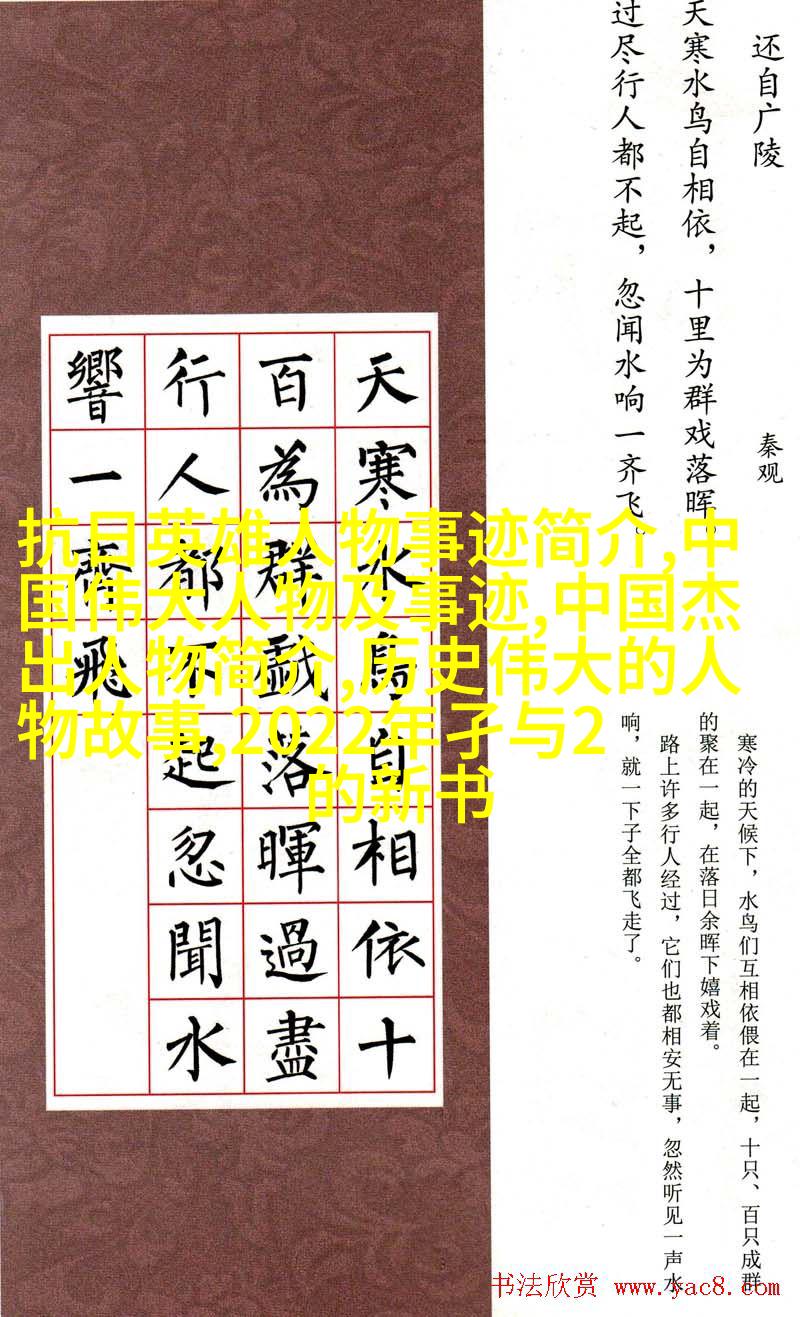 还自广陵
秦观
天寒水鸟自相依，十里为群戏落晖。
过尽行人都不起，忽闻水响一齐飞。
天寒水鳥自相依十
百為群戲落暉過盡
行人都不起忽聞水
響一齊飛
抗日英雄人物事迹简介,中
国伟大人物及事迹,中国杰
出人物简介,历史伟大的人
物故事,2022年孑与2
的新书
寒冷的天候下，水鸟们互相依偎在一起，十只、百只成群
的聚在一起，在落日余晖下嬉戏着。
路上许多行人经过，它们也都相安无事，忽然听见一声水
响，就一下子全都飞走了。
书法欣赏 www.yac8.com